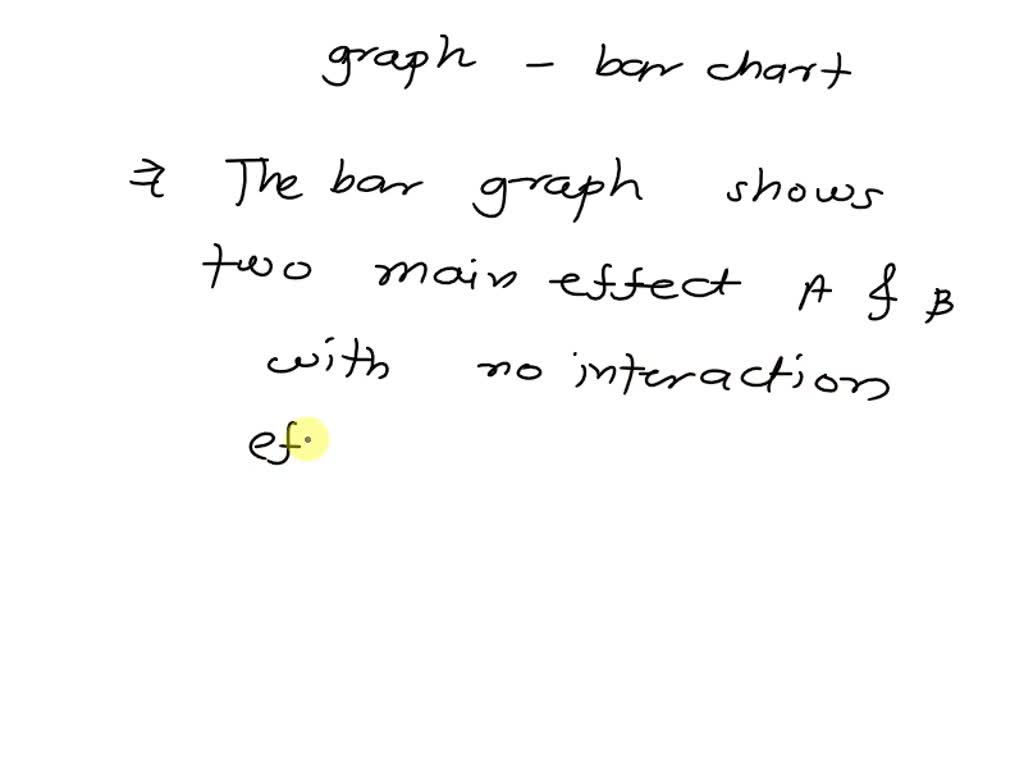 graph - bar chart
⇒ The bar graph shows
two main effect A & B
with no interaction
ef